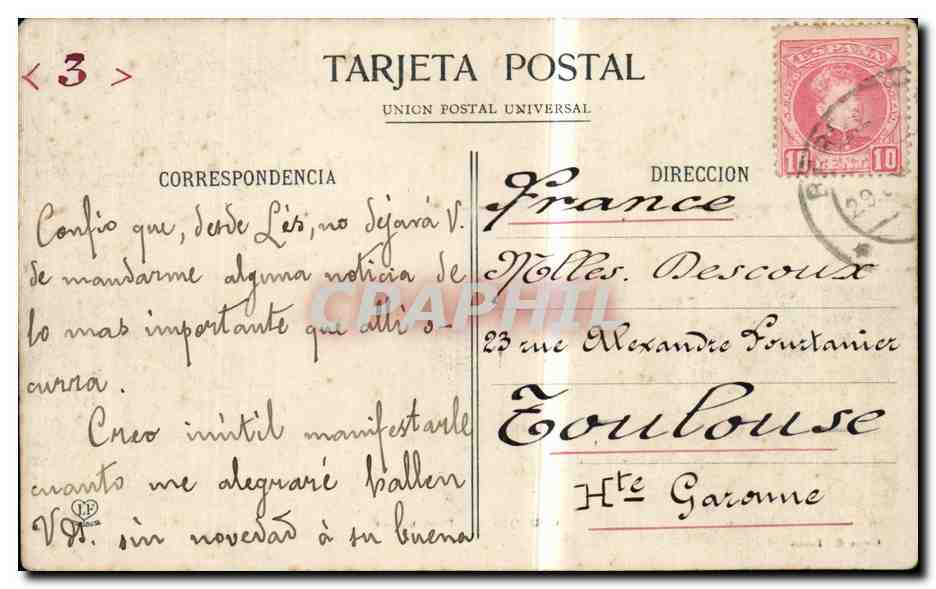 < 3 >
TARJETA POSTAL
UNION POSTAL UNIVERSAL
CORRESPONDENCIA
Confio que, desde Lés, no dejará V.
de mandarme alguna noticia de
lo mas importante que alli o-
curra.
Creo inútil manifestarle
cuanto me alegraré hallen
Vds. sin novedad à su buena
DIRECCION
France
Mlles. Descoux
23 rue Alexandre Fourtanier
Toulouse
Hte Garonne
ESPAÑA
10 CENT 10
29
CPAPHIL